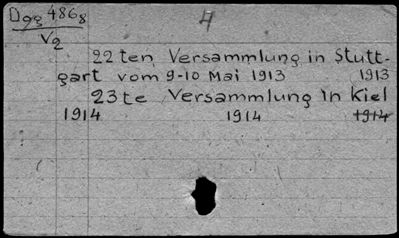 Dgg 4868 4
V2
22ten Versammlung in Stutt-
gart vom 9-10 Mai 1913 1913
23te Versammlung in Kiel
1914 1914 1914